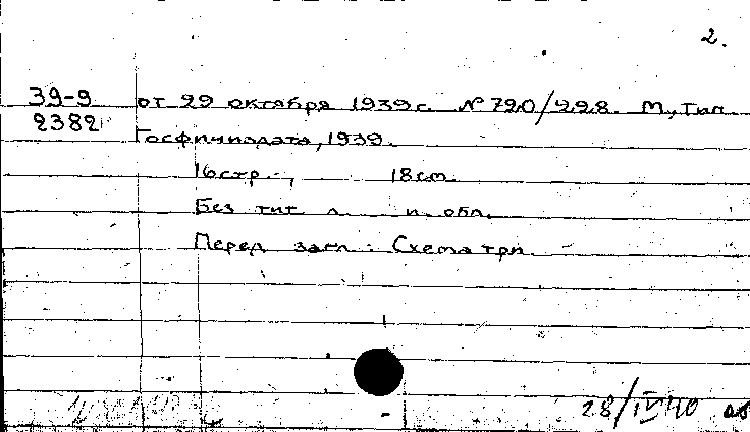 2.
39-9 от 29 октября 1939 г. № 790/228. М, Тип.
2382 Госфиниздата, 1939.
16 стр., 18 см.
Без тит. л. и обл.
Перед загл.: Схема трп.
28/IV 40